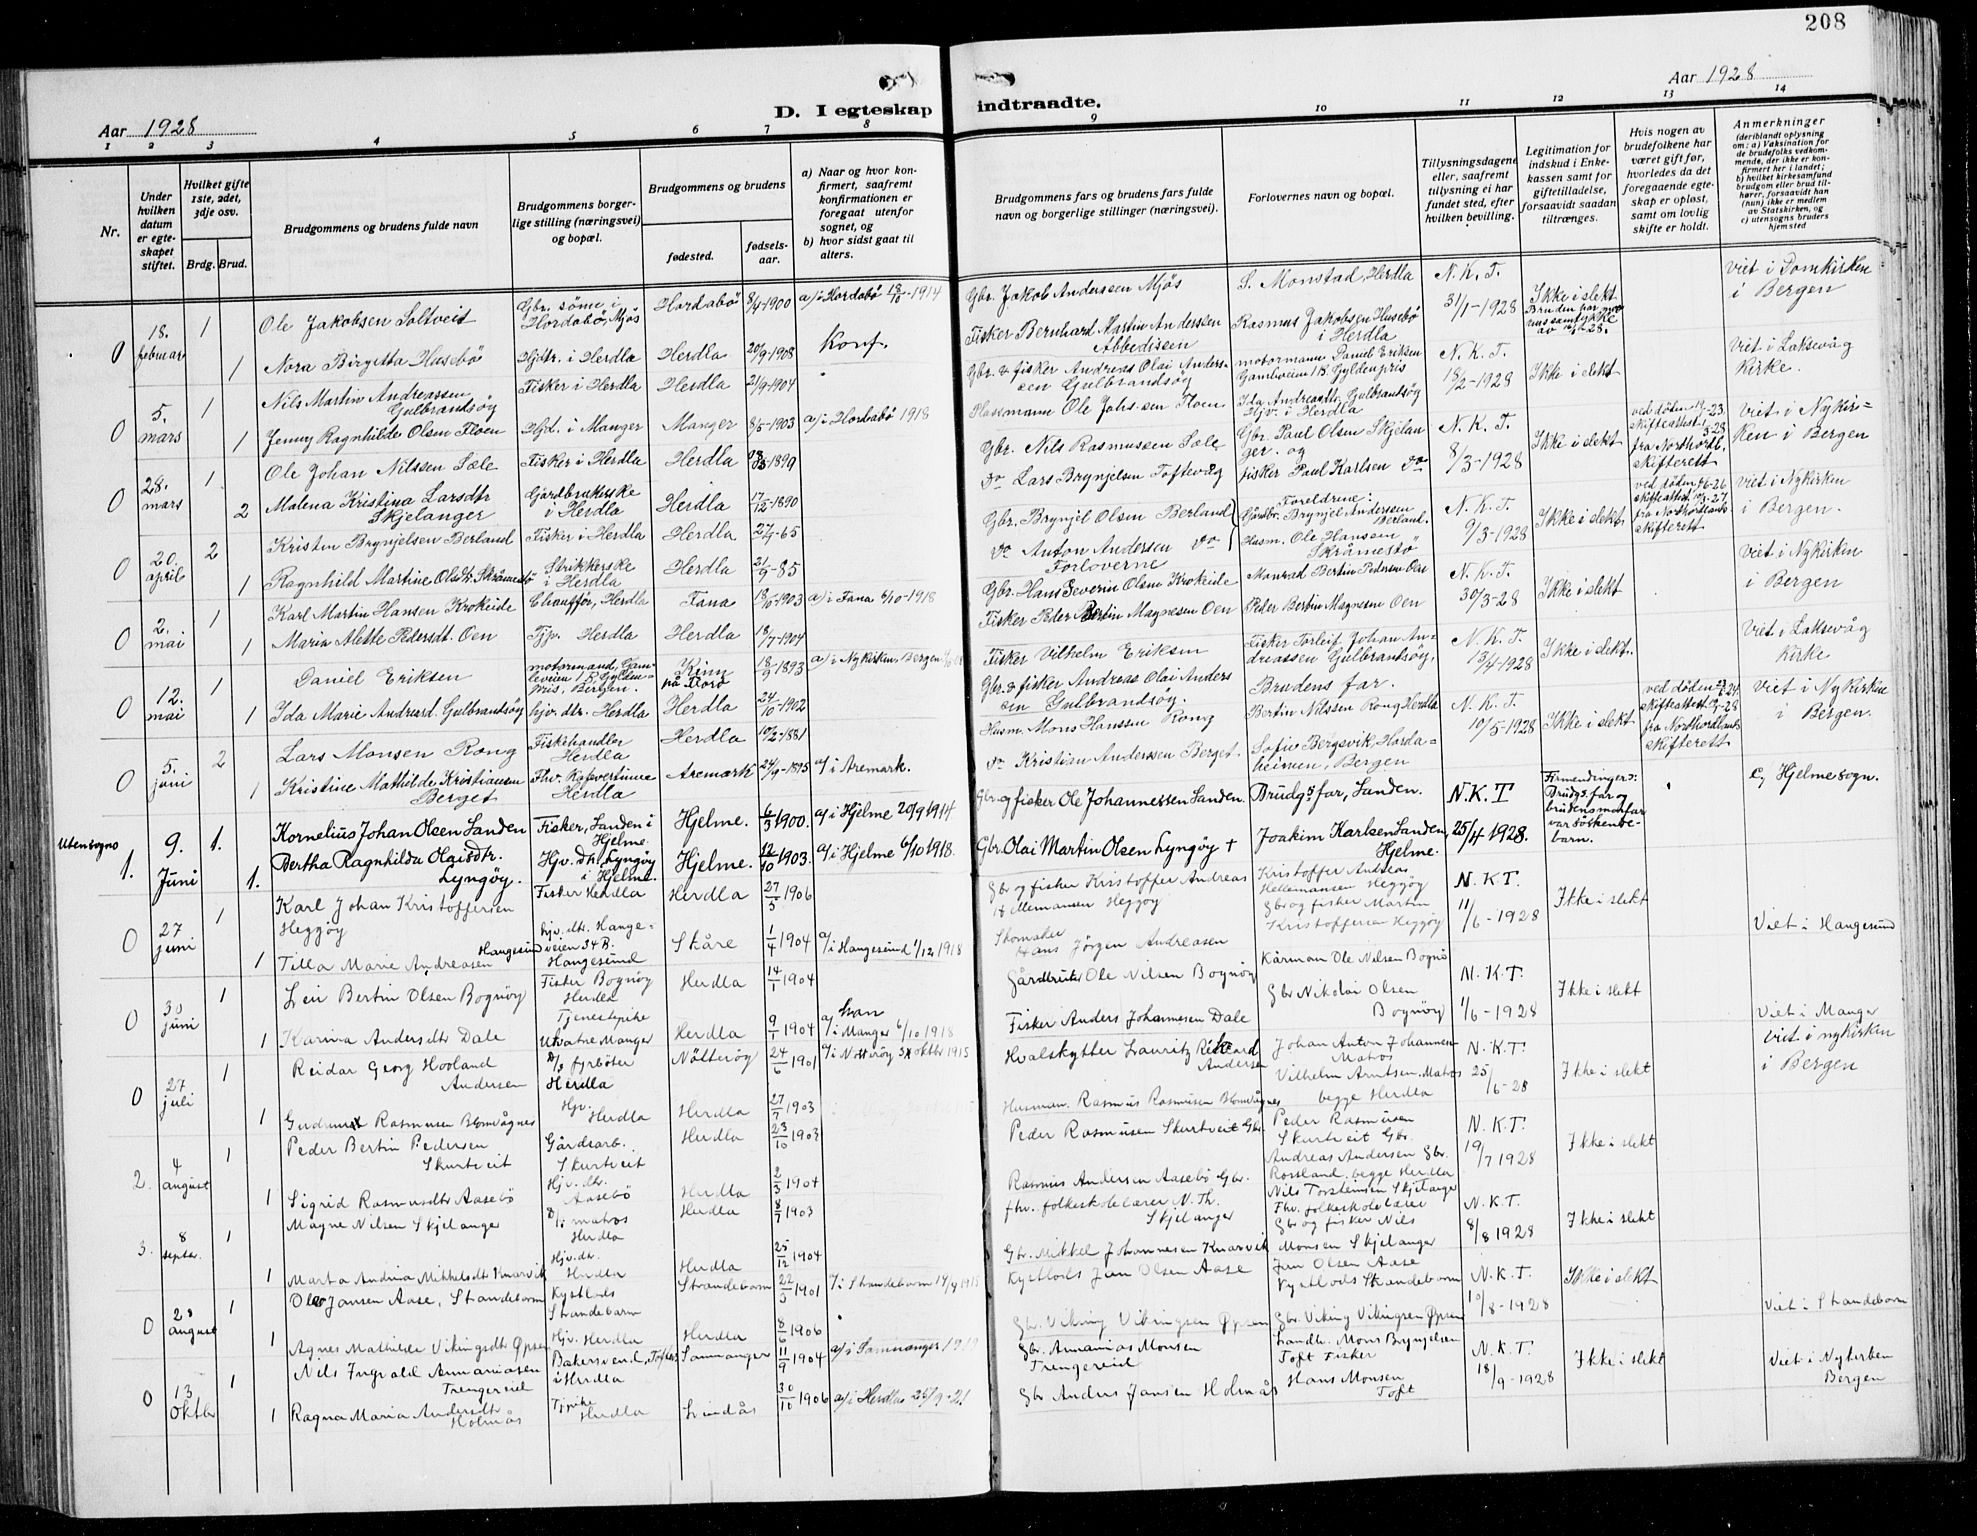 208
Aar 1928
D. I egteskap indtraadte.
Aar 1928
1 2 3 4 5 6 7 8 9 10 11 12 13 14
Nr.
Under hvilken datum er egteskapet stiftet.
Hvilket gifte 1ste, 2det, 3dje osv.
Brdg. Brud.
Brudgommens og brudens fulde navn
Brudgommens borgerlige stilling (næringsvei) og bopæl.
Brudgommens og brudens
fødested.
fødselsaar.
a) Naar og hvor konfirmert, saafremt konfirmationen er foregaat utenfor sognet, og
b) hvor sidst gaat til alters.
Brudgommens fars og brudens fars fulde navn og borgerlige stillinger (næringsvei).
Forlovernes navn og bopæl.
Tillysningsdagene eller, saafremt tillysning ei har fundet sted, efter hvilken bevilling.
Legitimation for indskud i Enkekassen samt for giftetilladelse, forsaavidt saadan tiltrænges.
Hvis nogen av brudefolkene har været gift før, hvorledes da det foregaaende egteskap er opløst, samt om lovlig skifte er holdt.
Anmerkninger
(deriblandt oplysning om: a) Vaksination for de brudefolks vedkommende, der ikke er konfirmert her i landet; b) hvilket kirkesamfund brudgom eller brud tilhører, forsaavidt han (nun) ikke er medlem av Statskirken, og c) utensogns bruders hjemsted
0 18. februar 1 Ole Jakobsen Soltveit Gbr. sønn i Hordabø, Mjøs Hordabø 8/4-1900 a/ i Hordabø 18/10-1914 Gbr. Jakob Anderssen Mjøs S. Monstad, Herdla N. K. T. 31/1-1928 Ikke i slekt Viet i Domkirken i Bergen
1 Nora Birgitta Husebø Hjdtr. i Herdla Herdla 20/9-1908 Konf. Fisker Bernhard Martin Anderssen Abbedissen Rasmus Jakobsen Husebø i Herdla Bruden har mors samtykke
0 5. mars 1 Nils Martin Andreassen Gulbrandsøy Fisker i Herdla Herdla 21/9-1904 Gbr. & fisker Andreas Olai Anderssen Gulbrandsøy motormann Daniel Eriksen Gamleveien 1 B. Gyldenpris N. K. T. 18/2-1928 Ikke i slekt Viet i Laksevåg Kirke.
1 Jenny Ragnhilde Olsen Floen Hjd. i Manger Manger 8/5-1903 a/ i Hordabø 1918 Plassmann Ole Johs.sen Floen Ida Andreasdtr. Gulbrandsøy Hjv. i Herdla
0 28. mars 1 Ole Johan Nilssen Sæle Fisker i Herdla Herdla 1899 Gbr. Nils Rasmussen Sæle Gbr. Paul Olsen Skjelanger. og N. K. T. 8/3-1928 Ikke i slekt ved døden skifteattest fra Nordhordl. skifterett Viet i Nykirken i Bergen
2 Malena Kristina Larsdtr Skjelanger Gårdbrukerske i Herdla Herdla 17/12-1890 do Lars Brynjelsen Toftevåg fisker Paul Karlsen do
0 20. april 2 Kristen Brynjelsen Berland Fisker i Herdla Herdla 27/1-65 Gbr. Brynjel Olsen Berland Foreldrene: Gårdbr. Brynjel Anderssen Berland. N. K. T. 9/3-1928 Ikke i slekt. ved døden skifteattest fra Nordhordlands skifterett viet i Nykirken i Bergen.
1 Ragnhild Martine Olsdtr. Skråmestø Strikkerske i Herdla Herdla 21/9-85 do Anton Andersen do Forloverne Husm. Ole Hansen Skråmestø
0 2. mai 1 Karl Martin Hansen Krokeide Chauffør, Herdla Fana 18/10-1903 a/ i Fana 6/10-1918 Gbr. Hans Severin Olsen Krokeide Monrad Bertin Pedersen Oen N. K. T. 30/3-28 Ikke i slekt Viet i Nykirken i Bergen
1 Maria Alette Pedersdt. Oen Tjp. Herdla Herdla 18/7-1904 Fisker Peder Bertin Magnesen Oen Peder Bertin Magnesen Oen
0 12. mai 1 Daniel Eriksen motormand, Gamleveien 1 B. Gyldenpris, Bergen. Kinn på Florø 18/9-1893 a/ i Nykirken, Bergen Fisker Vilhelm Eriksen Fisker Torleif Johan Andreassen Gulbrandsøy. N. K. T. 13/4-1928 Ikke i slekt. Viet i Laksevåg Kirke
1 Ida Marie Andreasd. Gulbrandsøy hjv. dtr. Herdla Herdla 24/10-1902 Gbr. & fisker Andreas Olai Anderssen Gulbrandsøy. Brudens far.
0 5. juni 2 Lars Monsen Rong Fiskehandler Herdla Herdla 10/2-1881 Husm. Mons Hanssen Rong Bertin Nilssen Rong Herdla N. K. T. 10/5-1928 Ikke i slekt ved døden skifteattest fra Nordhordlands skifterett Viet i Nykirken i Bergen.
1 Kristine Mathilde Kristiansen Berget Fhv. Kafevertinne Herdla Aremark 24/9-1895 a/ i Aremark. do Kristian Anderssen Berget. Sofie Bergsvik, Hordaheimen, Bergen
Utensogns 1. 9. Juni 1. Kornelius Johan Olsen Landen Fisker, Landen i Hjelme. Hjelme. 6/3 1900. a/ i Hjelme 20/9 1914. Gbr. og fisker Ole Johannessen Landen. Brudg.s far, Landen. N. K. T 25/4 1928. Firmendinger: Brudg.s far og brudens morfar var søskenebarn. c/ Hjelme sogn.
1. Bertha Ragnhilda Olaisdtr. Lyngøy. Hjv. dtr. Lyngøy i Hjelme. Hjelme. 12/10 1903. a/ i Hjelme 6/10 1918. Gbr. Olai Martin Olsen Lyngøy † Joakim Karlsen Landen, Hjelme.
0 27 juni 1 Karl Johan Kristoffersen Heggøy Fisker Herdla Herdla 27/5 1906 Gbr og fisker Kristoffer Andreas Hellemansen Heggøy Kristoffer Andreas Hellemansen Heggøy N. K. T. 11/6-1928 Ikke i slekt Viet i Haugesund
1 Tilla Marie Andreasen Haugesund hjv. dtr. Haugeveien 34 B. Haugesund Skåre 1/4 1904 a/ i Haugesund 1/12 1918 Skomaker Hans Jörgen Andreasen Gbr og fisker Martin Kristoffersen Heggøy
0 30 juni 1 Leif Bertin Olsen Bognøy Fisker Bognøy Herdla Herdla 14/1 1904 Gårdbruker Ole Nilsen Bognøy Kårmann Ole Nilsen Bognø N. K. T. 1/6-1928 Ikke i slekt Viet i Manger
1 Karina Andersdtr Dale Tjenestepike Utvatne Manger Herdla 9/1 1904 a/ han i Manger 6/10 1918 Fisker Anders Johannesen Dale Gbr Nikolai Olsen Bognøy
0 27 juli 1 Reidar Georg Hovland Andersen D/S fyrbøter Herdla Nøtterøy 24/6 1901 a/ i Nøtterøy 31 oktbr 1915 Hvalskytter Lauritz Rikard Andersen Johan Anton Johannesen Matos N. K. T. 25/6-28 Ikke i slekt Viet i nykirken i Bergen
1 Gudrun Rasmusen Blomvågnes Hjv. Herdla Herdla 27/7 1903 Husman. Rasmus Rasmusen Blomvågnes Vilhelm Arntsen, Matos begge Herdla
2. 4 august 1 Peder Bertin Pedersen Skurtveit Gårdsarb. Skurtveit Herdla 23/10 1903 Peder Rasmusen Skurtveit Gbr. Peder Rasmusen Skurtveit Gbr. N. K. T. 19/7 1928 Ikke i slekt
1 Sigrid Rasmusdtr Aasebø Hjv. dtr. Aasebø Herdla 2/3 1904 Rasmus Andersen Aasebø Gbr. Andreas Andersen Gbr. Rossland. begge Herdla
3. 8 septbr. 1 Magne Nilsen Skjelanger matros Herdla Herdla 8/7 1903 fhv. folkeskolelærer N. Th. Skjelanger Nils Torsteinsen Skjelanger Fhv. folkeskolelærer N. K. T. 8/8 1928 Ikke i slekt
1 Marta Andrina Mikkelsdt Knarvik Hjv. dtr. Herdla Herdla 25/12 1904 Gbr. Mikkel Johannesen Knarvik Gbr og fisker Nils Monsen Skjelanger
0 28 august 1 Ole Jansen Aase, Strandebarm Kystlods Strandebarm Strandebarm 22/5 1901 a/ i Strandebarm 14/9 1915 Kystlods Jan Olsen Aase Jan Olsen Aase Kystlods Strandebarm N. K. T. 10/8-1928 Ikke i slekt Viet i Strandebarm
1 Agnes Mathilde Vikingsdtr Øpsen Hjv. Herdla Herdla 8/6 1906 Gbr. Viking Vikingsen Øpsen Gbr. Viking Vikingsen Øpsen
0 13 oktbr 1 Nils Ingvald Ammaniasen Trengereid Bakersvend, Toftøy i Herdla Samnanger 11/9 1904 a/ i Samnanger 1919 Gbr. Ammanias Monsen Trengereid Landh. Mons Brynjelsen Toft Fisker N. K. T. 18/9-1928 Ikke i slekt Viet i Nykirken Bergen
1 Ragna Maria Andersdtr Holmås Tj.pike Herdla Lindås 30/10 1906 a/ i Herdla 25/9-21 Gbr Anders Jansen Holmås Hans Monsen Toft